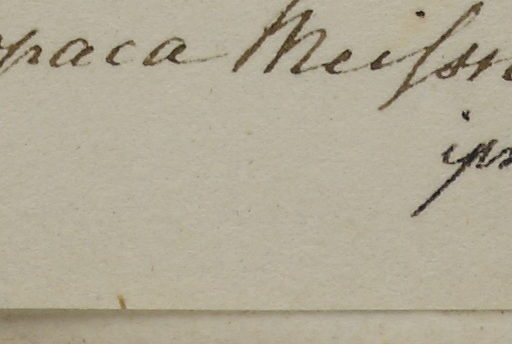 opaca Meissn
ips